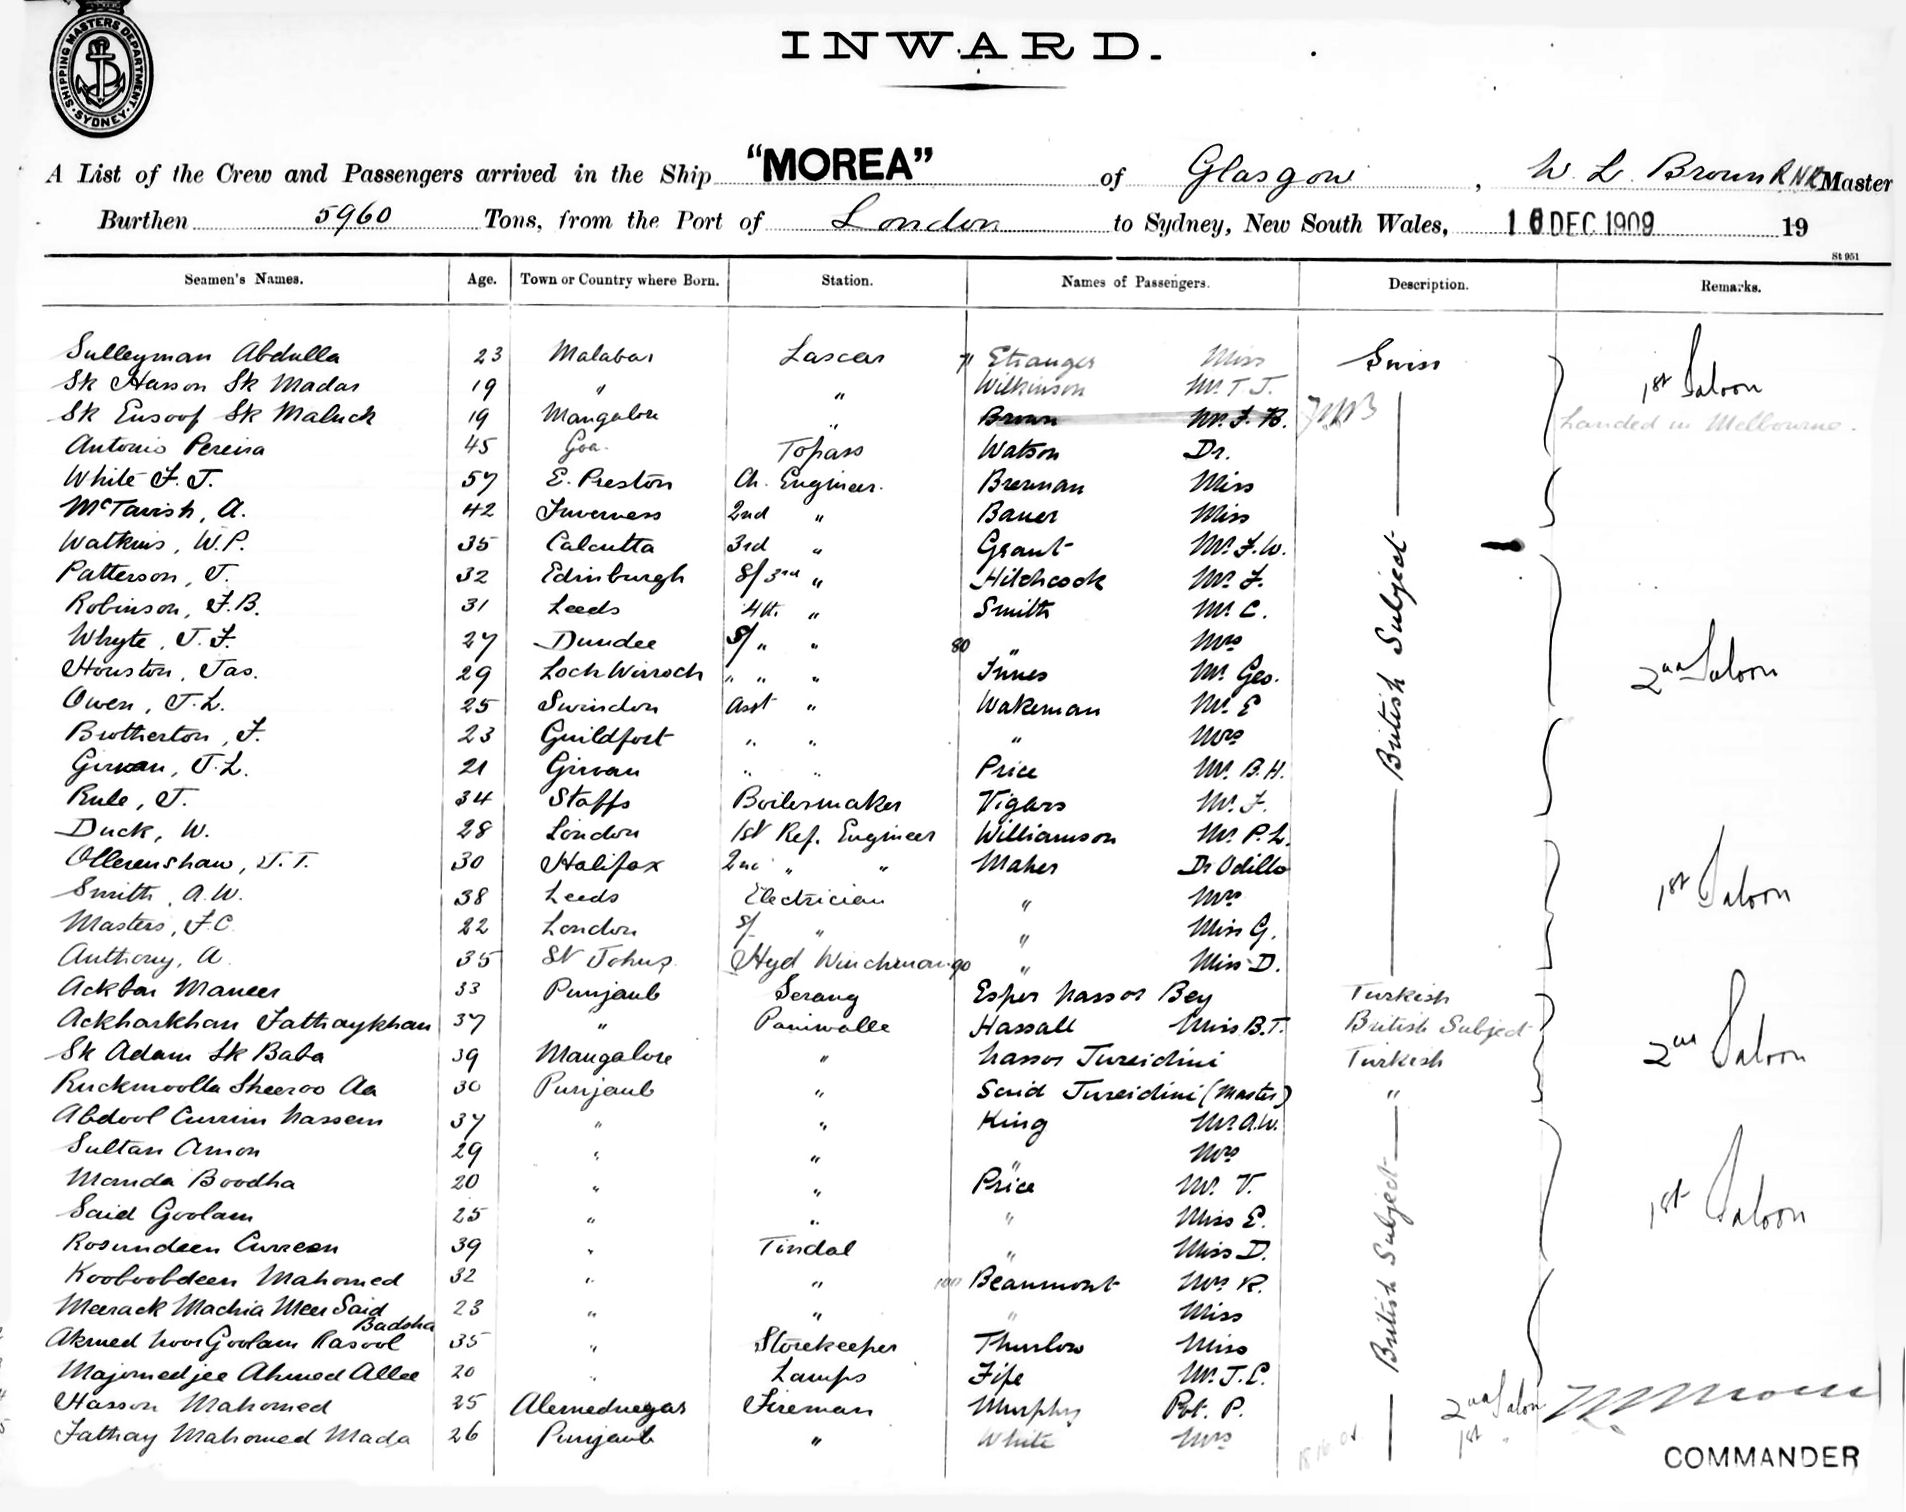 SHIPPING MASTERS DEPARTMENT SYDNEY
INWARD.
A List of the Crew and Passengers arrived in the Ship "MOREA" of Glasgow, W. L. Brown RNR Master
Burthen 5960 Tons, from the Port of London to Sydney, New South Wales, 16 DEC 1909 19
St 951
Seamen's Names. Age. Town or Country where Born. Station. Names of Passengers. Description. Remarks.
Sulleyman Abdulla 23 Malabar Lascar 71 Etranger Miss Swiss
Sk Hasson Sk Madar 19 " " Wilkinson Mr. T. J. 1st Saloon
Sk Eusoof Sk Maluck 19 Mangalore " Brown Mr. F. B. Landed in Melbourne.
Antonio Pereira 45 Goa. Topass Watson Dr.
White F. J. 57 E. Preston Ch. Engineer. Brennan Miss
McTavish, A. 42 Inverness 2nd " Bauer Miss
Watkins, W.P. 35 Calcutta 3rd " Grant Mr. F. W.
Patterson, J. 32 Edinburgh S/ 3rd " Hitchcock Mr. F.
Robinson, F.B. 31 Leeds 4th. " Smith Mr. C.
Whyte, J. F. 27 Dundee S/ " " 80 " Mrs
Houston, Jas. 29 Loch Winnoch " " " Innes Mr. Geo. 2nd Saloon
Owen, J. L. 25 Swindon Asst " Wakeman Mr. E
Brotherton, F. 23 Guildfort " " " Mrs
Girvan, J. L. 21 Girvan " " Price Mr. B. H.
Rule, J. 34 Staffs Boilermaker Vigars Mr. F.
Duck, W. 28 London 1st Ref. Engineer Williamson Mr. P. L.
Ollerenshaw, J. T. 30 Halifax 2nd " " Maher Dr Odillo
Smith, A.W. 38 Leeds Electrician " Mrs 1st Saloon
Masters, F.C. 22 London S/ " " Miss G.
Anthony, A. 35 St Johns Hyd Winchman 90 " Miss D.
Ackbar Maneer 33 Punjaub Serang Esper Nassor Bey Turkish
Ackharkhan Fathaykhan 37 " Paniwalle Hassall Miss B.T. British Subject
Sk Adam Sk Baba 39 Mangalore " Nassor Jureidini Turkish 2nd Saloon
Ruckmoolla Sheeroo Aa 30 Punjaub " Said Jureidini (Master) "
Abdool Currim Nassem 37 " " King Mr. A.W.
Sultan Amon 29 " " " Mrs
Manda Boodha 20 " " Price Mr. V.
Said Goolam 25 " " " Miss E. 1st Saloon
Rosundeen Curreem 39 " Tindal " Miss D.
Kooboobdeen Mahomed 32 " " 100 Beaumont Mrs R.
Meerack Machia Meer Said Badsha 23 " " " Miss
Akmed Noor Goolam Rasool 35 " Storekeeper Thurlow Miss
Majomedjee Ahmed Allee 20 " Lamps Fife Mr. J. C.
Hasson Mahomed 25 Alemednegar Fireman Murphy Pat. P. 2nd Saloon
Fathay Mahomed Mada 26 Punjaub " White Mrs 1st "
British Subject
British Subject
COMMANDER